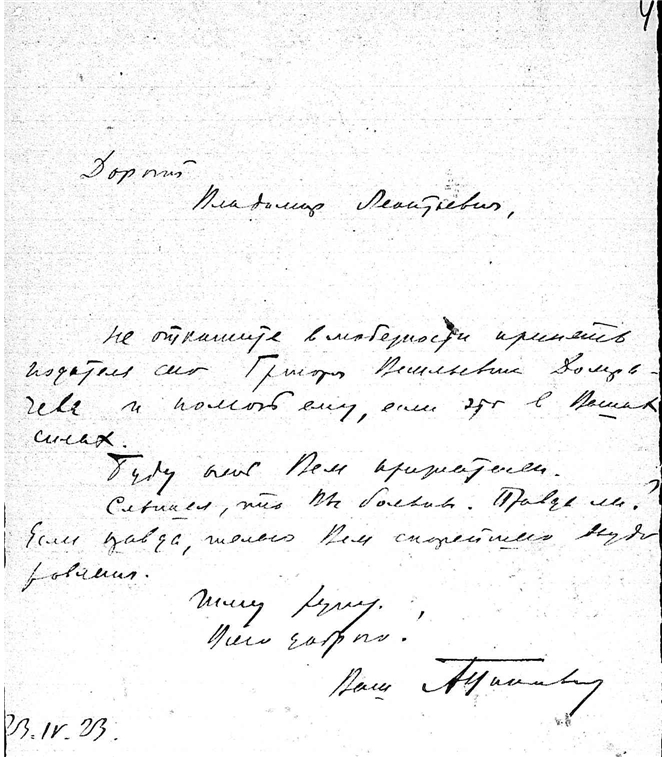 4
Дорогой
Владимир Леонтьевич,
не откажите в любезности принять
подателя сего Григория Васильевича Домра-
чева и помочь ему, если это в Ваших
силах.
Буду очень Вам признателен.
Слышал, что Вы больны. Правда ли?
Если правда, желаю Вам скорейшего выздо
ровления.
Жму руку.
Всего доброго!
Ваш
23.IV.23.